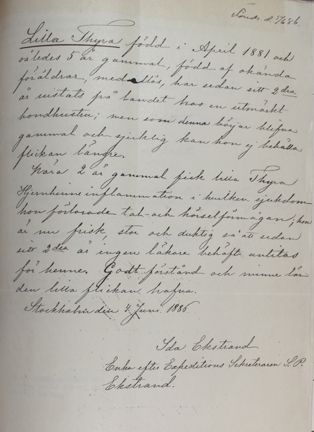 Lilla Thyra född i April 1881 och
således 5 år gammal, född af okända
föräldrar, medellös, har sedan sitt 2dra
år vistats på landet hos en utmärkt
bondhustru; men som denna börjar blifva
gammal och sjuklig kan hon ej behålla
flickan längre.
Nära 2 år gammal fick lilla Thyra
Hjernhinneinflammation i hvilken sjukdom
hon förlorade tal- och hörselförmågan; hon
är nu frisk stor och duktig så att sedan
sitt 2dra år ingen läkare behöft anlitas
för henne. Godt förstånd och minne lär
den lilla flickan hafva.
Stockholm den 4 Juni 1886
Ida Ekstrand
Enka efter Expeditions Sekreteraren S. P.
Ekstrand.